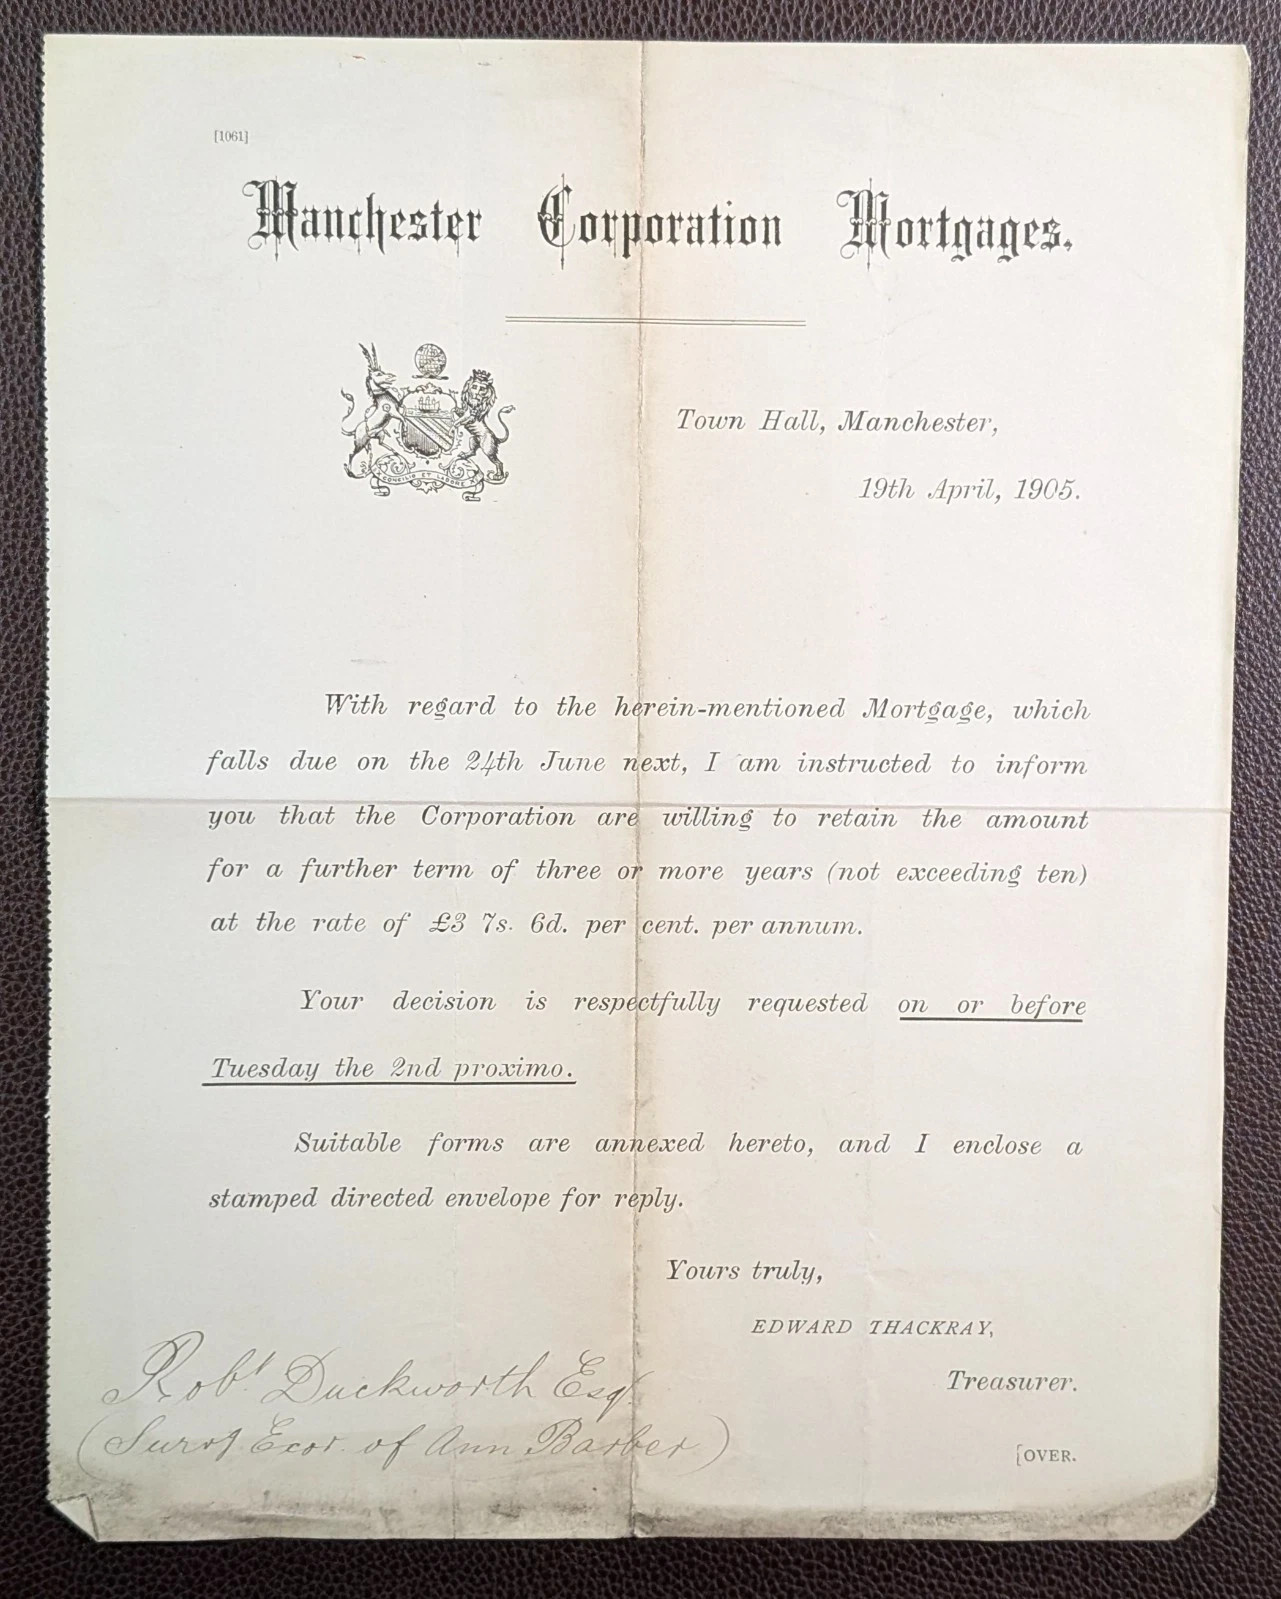 [1061]
Manchester Corporation Mortgages.
CONCILIO ET LABORE
Town Hall, Manchester,
19th April, 1905.
With regard to the herein-mentioned Mortgage, which
falls due on the 24th June next, I am instructed to inform
you that the Corporation are willing to retain the amount
for a further term of three or more years (not exceeding ten)
at the rate of £3 7s. 6d. per cent. per annum.
Your decision is respectfully requested on or before
Tuesday the 2nd proximo.
Suitable forms are annexed hereto, and I enclose a
stamped directed envelope for reply.
Yours truly,
EDWARD THACKRAY,
Treasurer.
Robt Duckworth Esqr
(Survg Ecor. of Ann Barber)
[OVER.